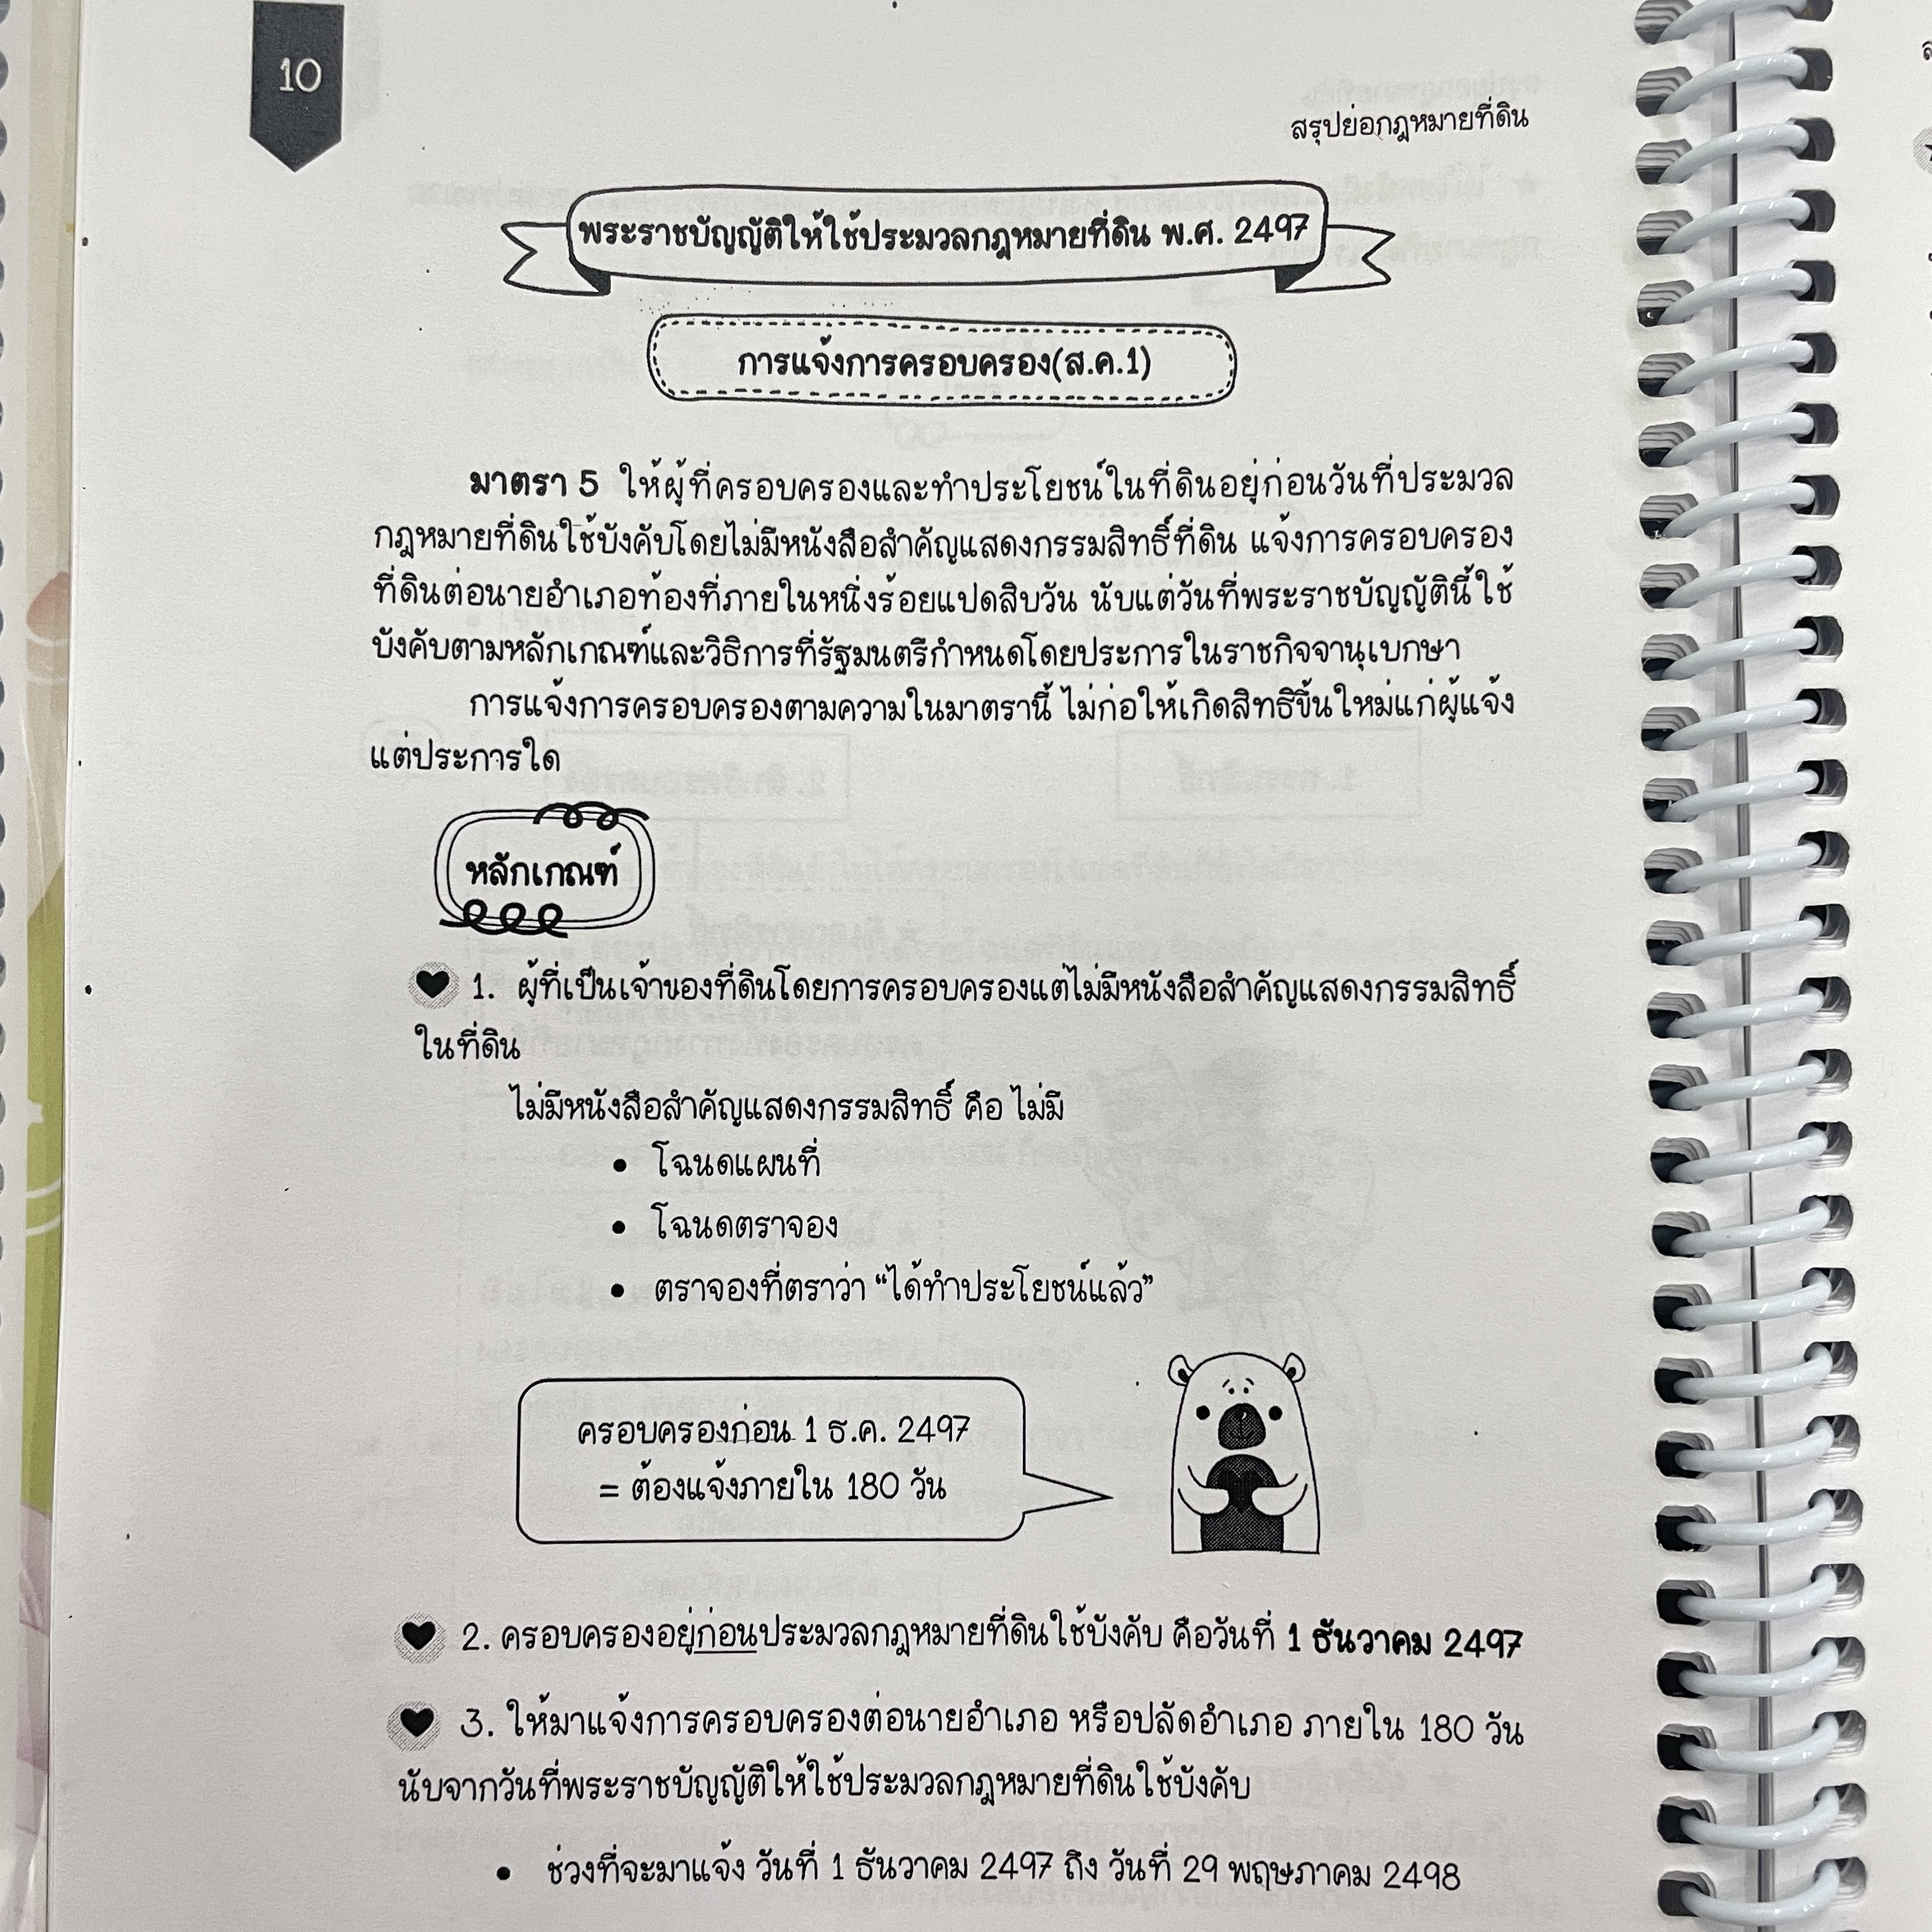 10
สรุปย่อกฎหมายที่ดิน
พระราชบัญญัติให้ใช้ประมวลกฎหมายที่ดิน พ.ศ. 2497
การแจ้งการครอบครอง(ส.ค.1)
มาตรา 5 ให้ผู้ที่ครอบครองและทำประโยชน์ในที่ดินอยู่ก่อนวันที่ประมวล
กฎหมายที่ดินใช้บังคับโดยไม่มีหนังสือสำคัญแสดงกรรมสิทธิ์ที่ดิน แจ้งการครอบครอง
ที่ดินต่อนายอำเภอท้องที่ภายในหนึ่งร้อยแปดสิบวัน นับแต่วันที่พระราชบัญญัตินี้ใช้
บังคับตามหลักเกณฑ์และวิธิการที่รัฐมนตรีกำหนดโดยประการในราชกิจจานุเบกษา
การแจ้งการครอบครองตามความในมาตรานี้ ไม่ก่อให้เกิดสิทธิขึ้นใหม่แก่ผู้แจ้ง
แต่ประการใด
หลักเกณฑ์
1. ผู้ที่เป็นเจ้าของที่ดินโดยการครอบครองแต่ไม่มีหนังสือสำคัญแสดงกรรมสิทธิ์
ในที่ดิน
ไม่มีหนังสือสำคัญแสดงกรรมสิทธิ์ คือ ไม่มี
• โฉนดแผนที่
• โฉนดตราจอง
• ตราจองที่ตราว่า “ได้ทำประโยชน์แล้ว”
ครอบครองก่อน 1 ธ.ค. 2497
= ต้องแจ้งภายใน 180 วัน
2. ครอบครองอยู่ก่อนประมวลกฎหมายที่ดินใช้บังคับ คือวันที่ 1 ธันวาคม 2497
3. ให้มาแจ้งการครอบครองต่อนายอำเภอ หรือปลัดอำเภอ ภายใน 180 วัน
นับจากวันที่พระราชบัญญัติให้ใช้ประมวลกฎหมายที่ดินใช้บังคับ
• ช่วงที่จะมาแจ้ง วันที่ 1 ธันวาคม 2497 ถึง วันที่ 29 พฤษภาคม 2498